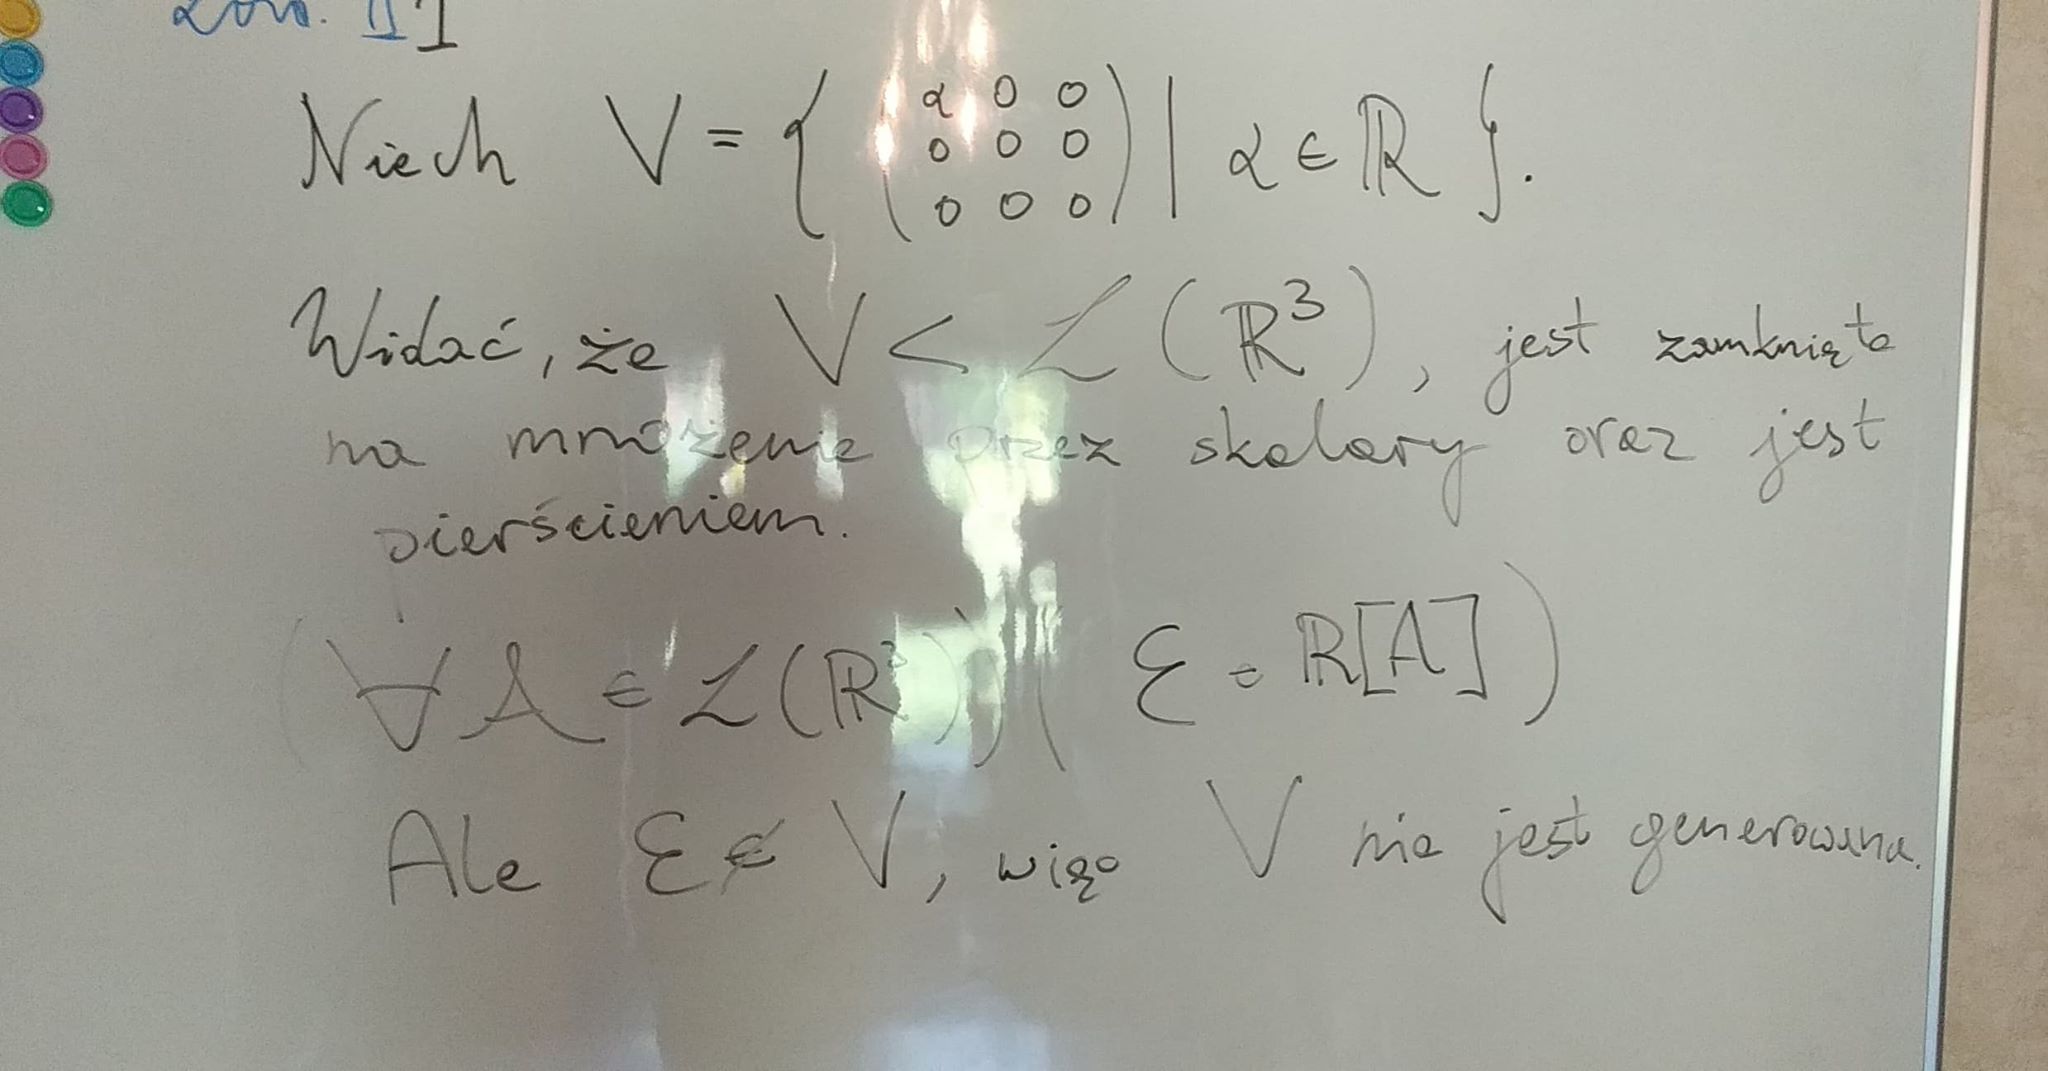 II I
Niech V = { ( α 0 0
0 0 0
0 0 0 ) | α ∈ ℝ }.
Widać, że V < L (ℝ³), jest zamknięta
na mnożenie przez skalary oraz jest
pierścieniem.
(∀ A ∈ L(ℝ³)) ( ℰ ∈ ℝ[A] )
Ale ℰ ∉ V, więc V nie jest generowana.